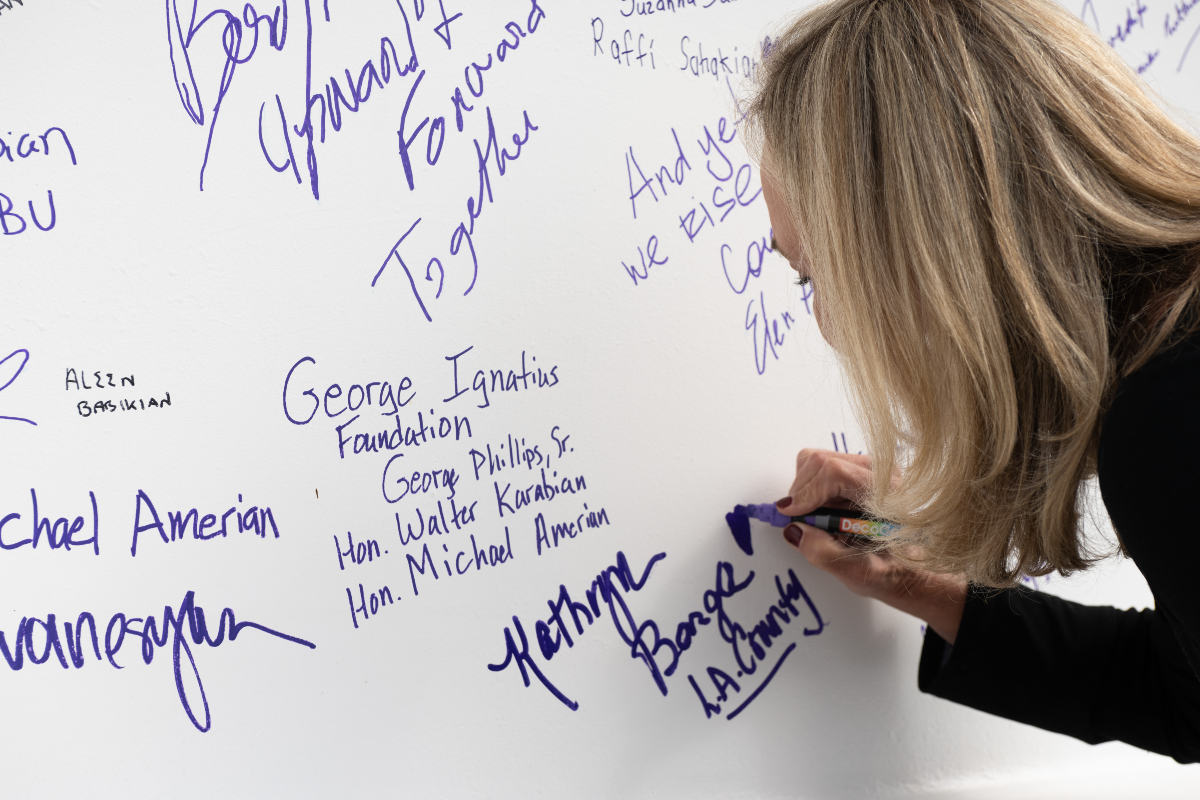 Upward &
Forward
Together
Raffi Sahakian
And yet
we RISE
bian
BU
ALEEN
BABIKIAN
George Ignatius
Foundation
George Phillips, Sr.
Hon. Walter Karabian
Hon. Michael Amerian
chael Amerian
vanesyan
Kathryn
Barger
L.A. County
Elen